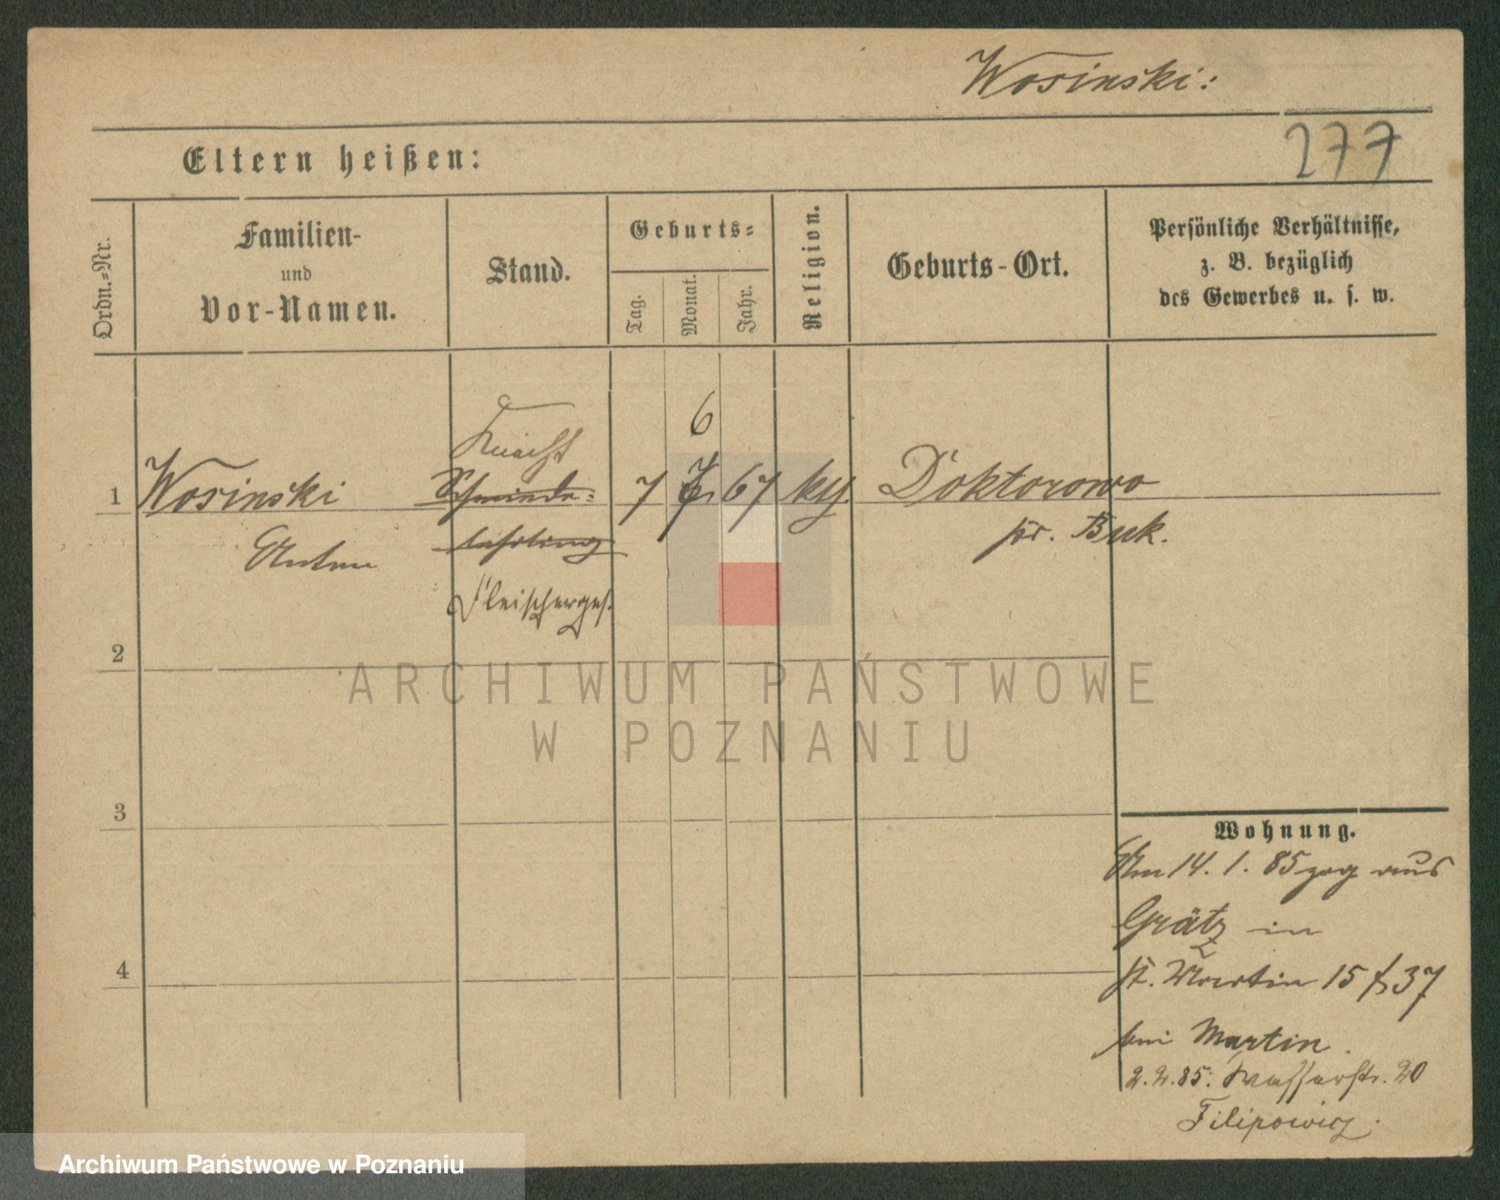 Wosinski:
277
Eltern heißen:
Ordn.=Nr.
Familien-
und
Vor-Namen.
Stand.
Geburts=
Tag.
Monat.
Jahr.
Religion.
Geburts-Ort.
Persönliche Verhältnisse,
z. B. bezüglich
des Gewerbes u. s. w.
Knecht
6
1 Wosinski 7 7 67 Doktorowo
Anton lehrling pr. Buk.
Fleischerges.
2
3
4
Wohnung.
Am 14. 1. 85 zog aus
Grätz in
St. Martin 15 37
bei Martin.
2. 2. 85. Wasserstr. 20
Filipowicz.
ARCHIWUM PAŃSTWOWE
W POZNANIU
Archiwum Państwowe w Poznaniu